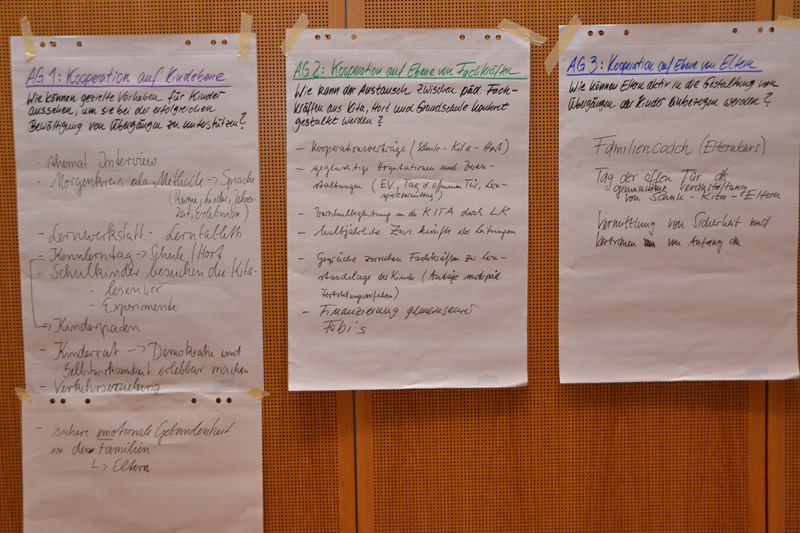 AG 1: Kooperation auf Kindebene
Wie können gezielte Vorhaben für Kinder
aussehen, um sie bei der erfolgreichen
Bewältigung von Übergängen zu unterstützen?
- Themat. Interview
- Morgenkreis als Methode → Sprache
(Reime, Lieder, Jahres-
zeit, Erlebnisse)
- Lernwerkstatt - Lerntabletts
- Kennlerntag → Schule / Hort
- Schulkinder besuchen die Kita
- lesen vor
- Experimente
→ Kinderpaten
- Kinderrat → Demokratie und
Selbstwirksamkeit erlebbar machen
- Verkehrserziehung
- sichere emotionale Gebundenheit
in den Familien
↳ Eltern
AG 2: Kooperation auf Ebene von Fachkräften
Wie kann der Austausch zwischen päd. Fach-
kräften aus Kita, Hort und Grundschule konkret
gestaltet werden?
- Kooperationsverträge (Schule - Kita - Hort)
- gegenseitige Hospitationen und Veran-
staltungen (EV, Tag d. offenen Tür, Lern-
spielevormittag)
- Vorschulbegleitung in der KITA durch LK
- halbjährliche Zus.künfte der Leitungen
- Gespräche zwischen Fachkräften zu Lern-
standslage des Kindes (Anträge sonderpäd.
Feststellungsverfahren)
- Finanzierung gemeinsamer
Fobi's
AG 3: Kooperation auf Ebene von Eltern
Wie können Eltern aktiv in die Gestaltung von
Übergängen der Kinder einbezogen werden?
Familiencoach (Elternkurs)
Tag der offen Tür als
gemeinsame Veranstaltung
von Schule - Kita - Eltern
Vermittlung von Sicherheit und
Vertrauen von Anfang an